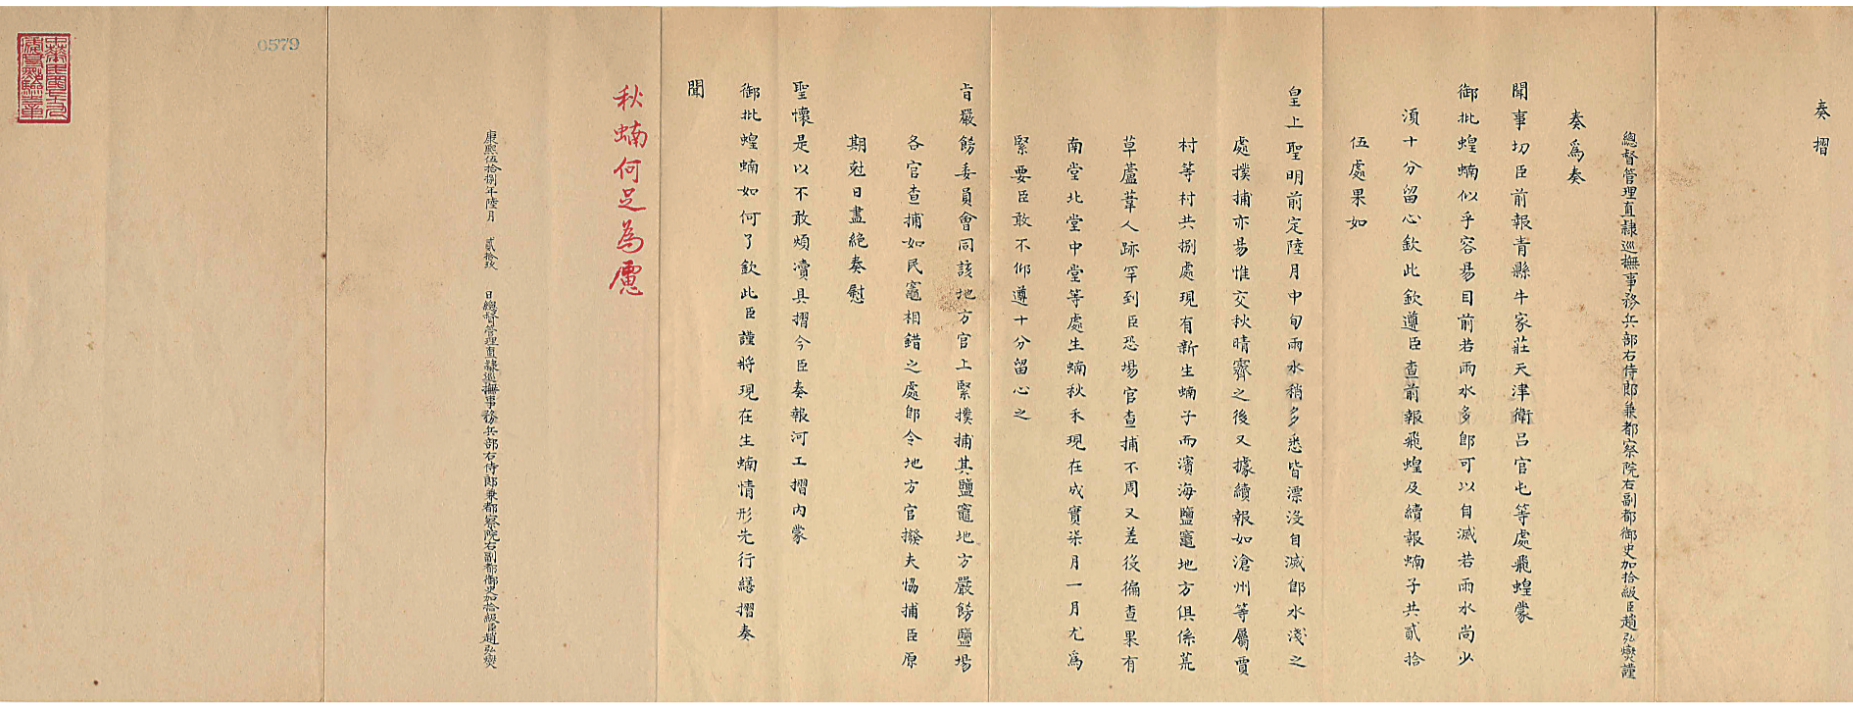 奏摺
總督管理直隸巡撫事務兵部右侍郎兼都察院右副都御史加拾級臣趙弘燮謹
奏為奏
聞事切臣前報青縣牛家莊天津衛呂官屯等處飛蝗蒙
御批蝗蝻似乎容易目前若雨水多即可以自滅若雨水尚少
湏十分留心欽此欽遵臣查前報飛蝗及續報蝻子共貳拾
伍處果如
皇上聖明前定陸月中旬雨水稍多悉皆漂沒自滅即水淺之
處撲捕亦易惟交秋晴霽之後又據續報如滄州等屬賈
村等村共捌處現有新生蝻子而濱海鹽竈地方俱係荒
草蘆葦人跡罕到臣恐場官查捕不周又差役徧查果有
南堂北堂中堂等處生蝻秋禾現在成實柒月一月尤為
緊要臣敢不仰遵十分留心之
旨嚴飭委員會同該地方官上緊撲捕其鹽竈地方嚴飭鹽場
各官查捕如民竈相錯之處即令地方官撥夫恊捕臣原
期尅日盡絕奏慰
聖懷是以不敢煩瀆具摺今臣奏報河工摺內蒙
御批蝗蝻如何了欽此臣謹將現在生蝻情形先行繕摺奏
聞
秋蝻何足為慮
康熙伍拾捌年陸月 貳拾玖 日總督管理直隸巡撫事務兵部右侍郎兼都察院右副都御史加拾級臣趙弘燮
0579